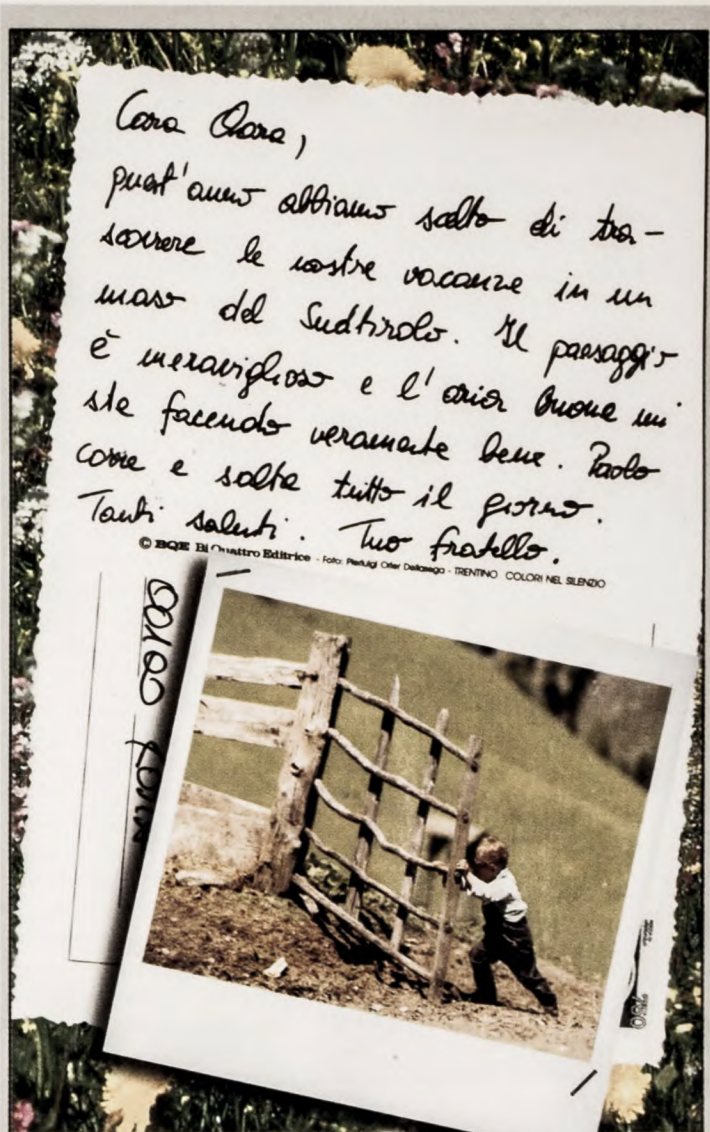 Cara Clara,
quest'anno abbiamo scelto di tra-
scorrere le nostre vacanze in un
maso del Sudtirolo. Il paesaggio
è meraviglioso e l'aria buona mi
sta facendo veramente bene. Paolo
corre e salta tutto il giorno.
Tanti saluti. Tuo fratello.
© BQE Bi Quattro Editrice - Foto: Pierluigi Orler Dellasega - TRENTINO COLORI NEL SILENZIO